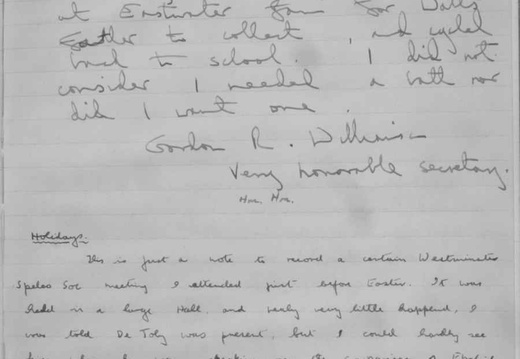 at Eastwater from for
Father to collect, and cycled
back to school. I did not
consider I needed a bath nor
did I want one.
Gordon R. Williams
Very honorable secretary.
Hon. Hon.
Holidays.
This is just a note to record a certain Westminster
Speleo Soc meeting I attended just before Easter. It was
held in a large Hall, and really very little happend, I
was told De Joly was present, but I could hardly see